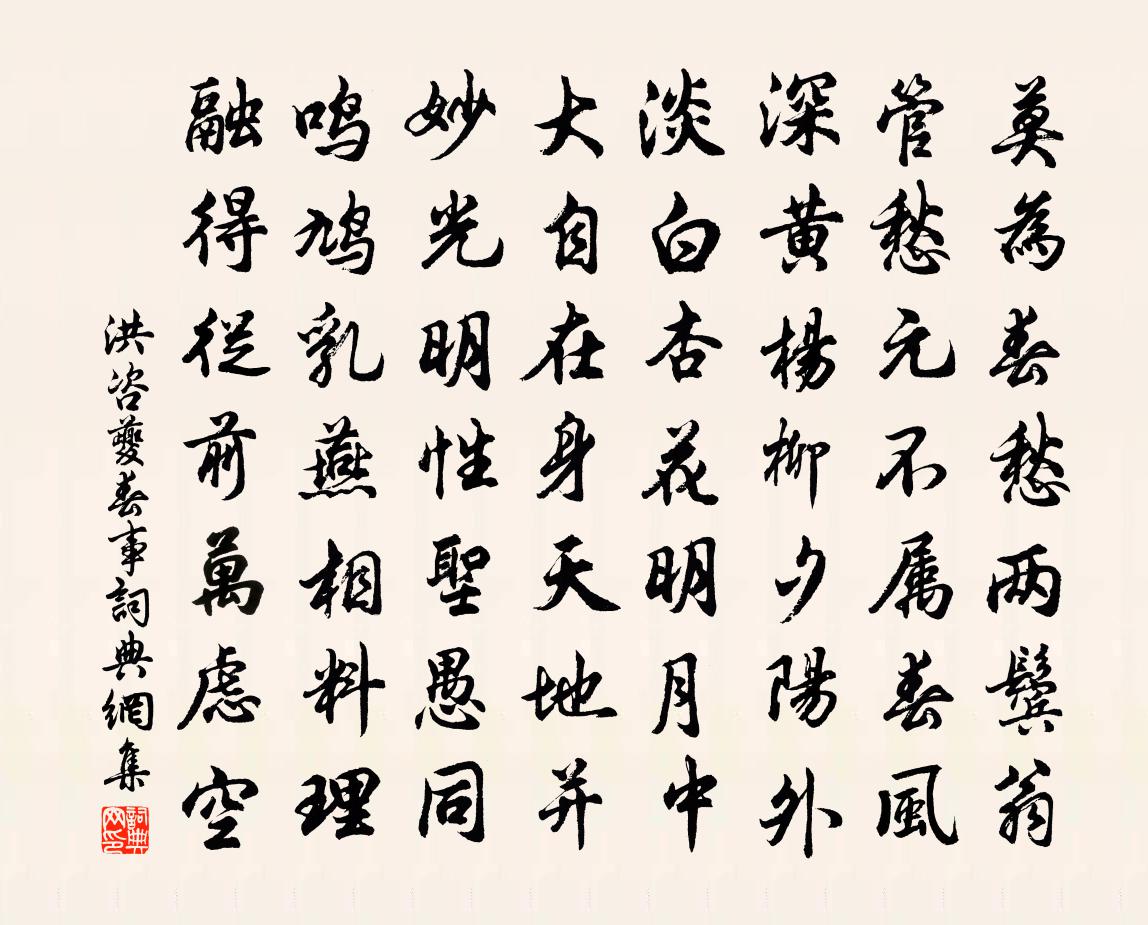 莫為春愁两鬓翁
管愁元不属春風
深黄楊柳夕陽外
淡白杏花明月中
大自在身天地并
妙光明性聖愚同
鸣鸠乳燕相料理
融得從前萬慮空
洪咨夔春事詞典網集
詞典网印